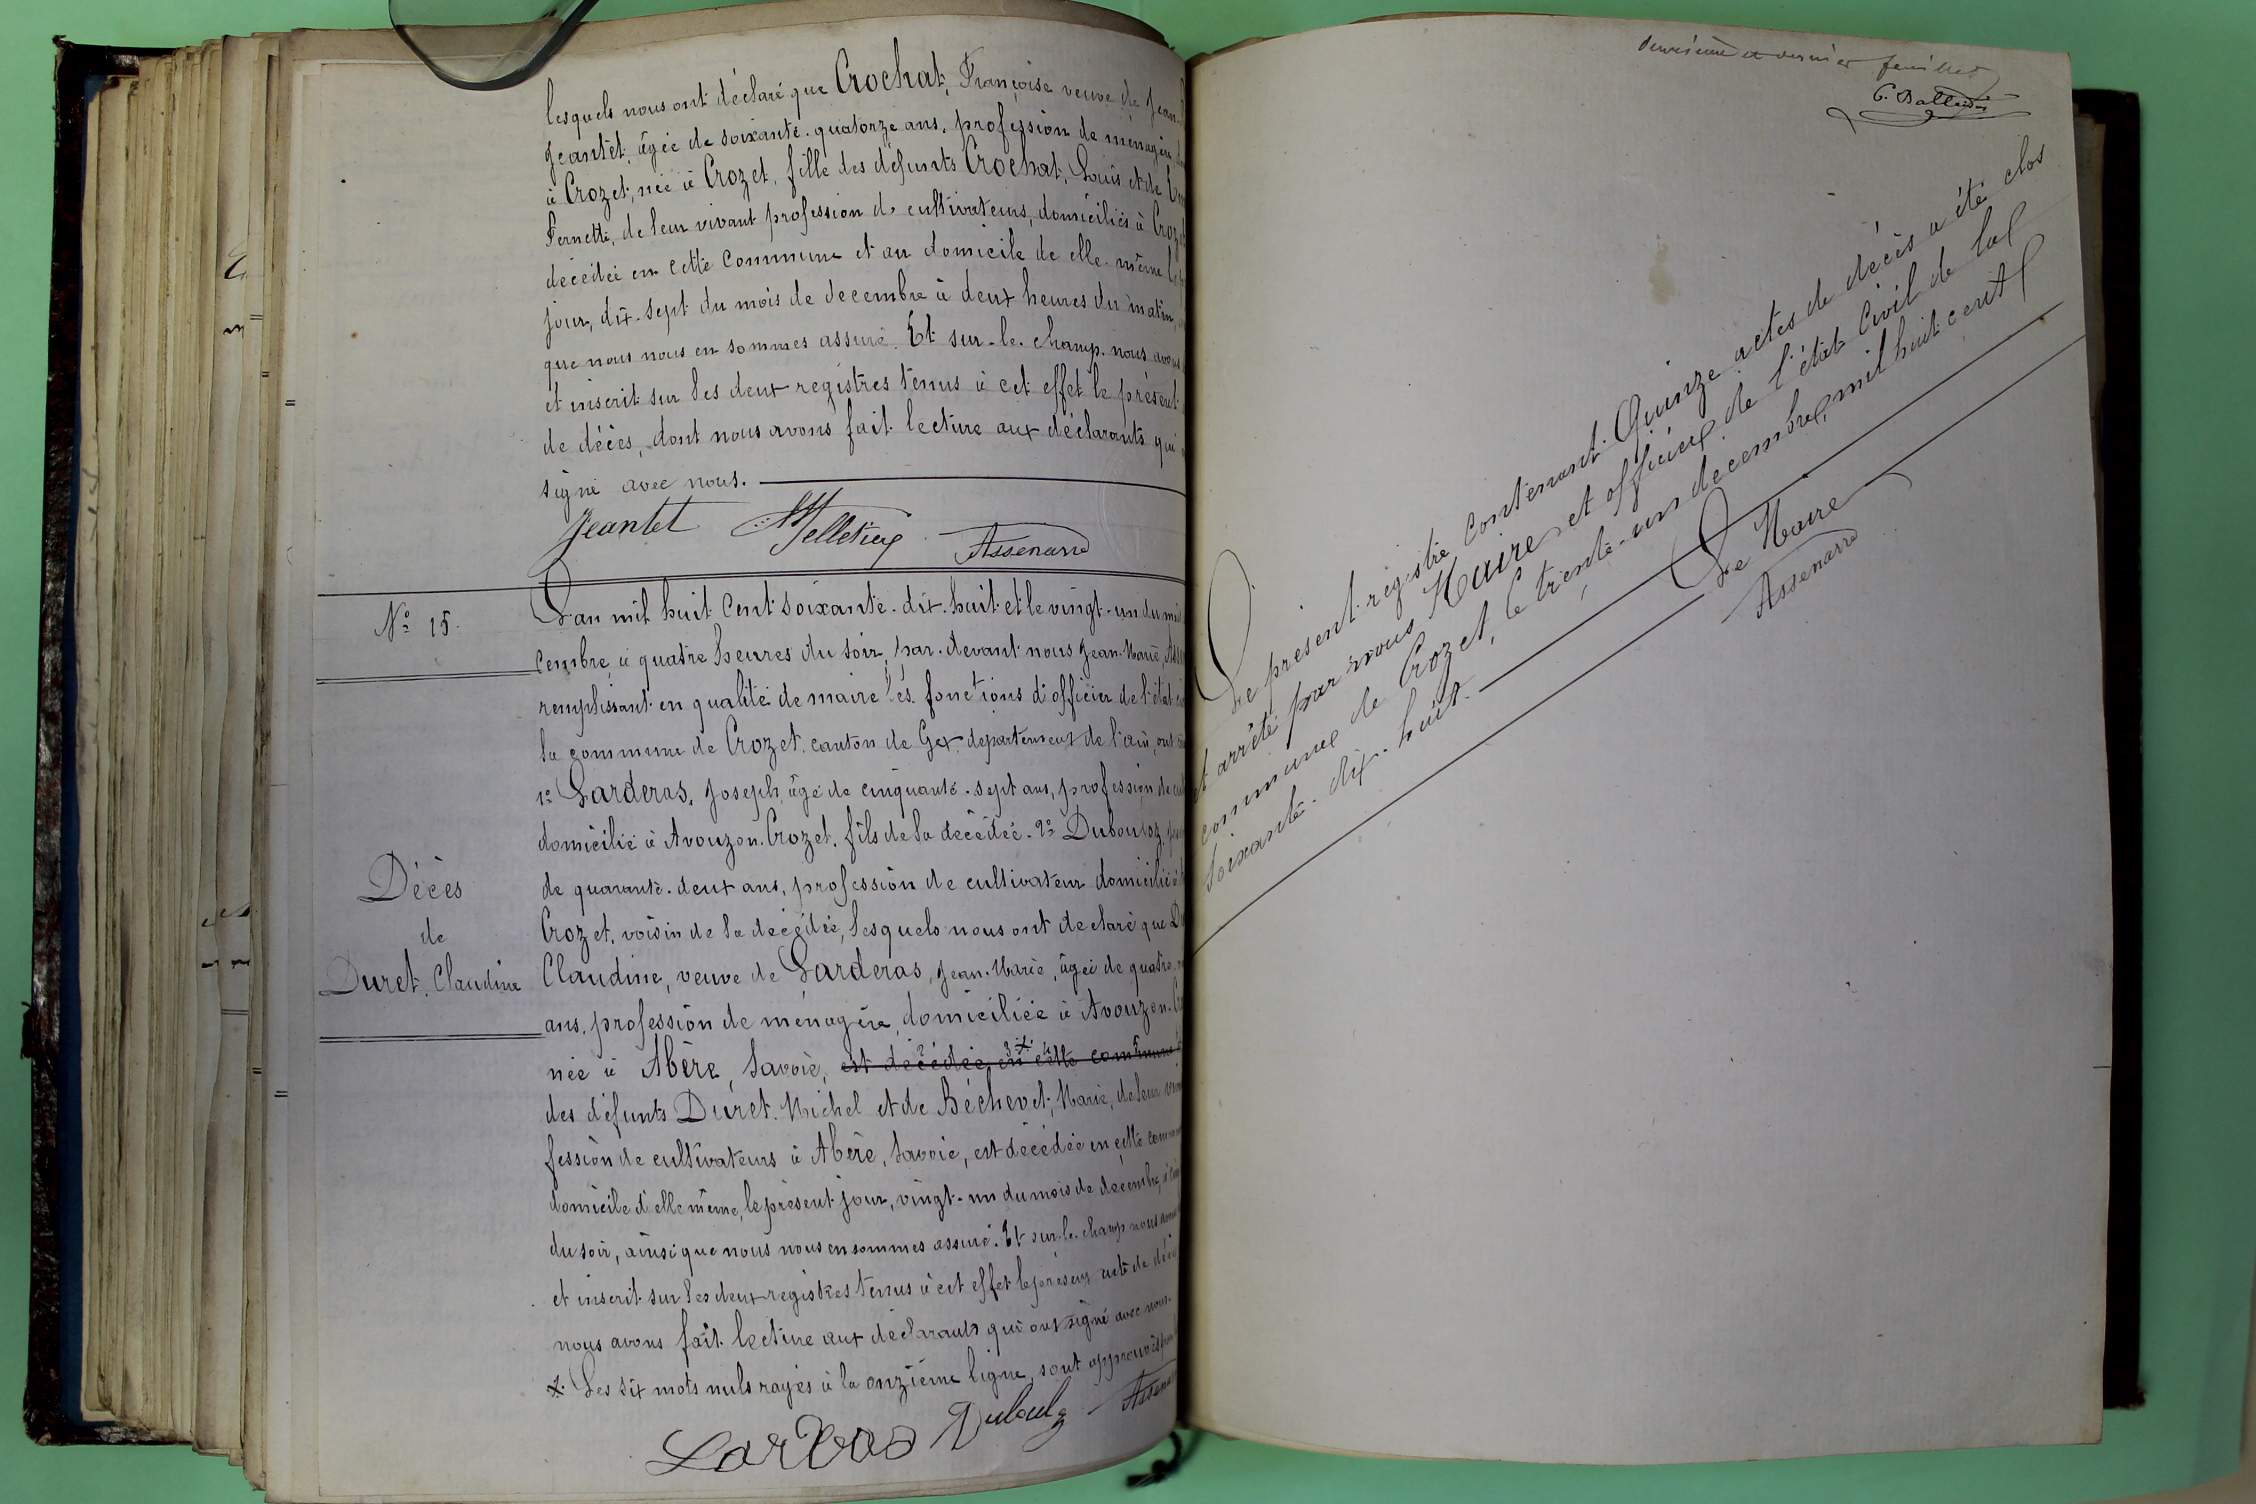 lesquels nous ont déclaré que Crochat, Françoise veuve de Jean
Jeantet, âgée de soixante-quatorze ans, profession de ménagère,
à Crozet, née à Crozet, fille des défunts Crochat, Louis et de
Pernette, de leur vivant profession de cultivateurs, domiciliés à Crozet
décédée en cette commune et au domicile de elle-même le
jour, dix-sept du mois de decembre à deux heures du matin,
que nous nous en sommes assuré. Et sur-le-champ nous avons
et inscrit sur les deux registres tenus à cet effet le présent
de décès, dont nous avons fait lecture aux déclarants qui
signé avec nous.
Jeantet Pelletier Assenare
Nº 15.
L'an mil huit cent soixante-dix-huit et le vingt-un du mois
cembre, à quatre heures du soir, par-devant nous Jean-Marie,
remplissant en qualité de maire les fonctions d'officier de l'état
la commune de Crozet, canton de Gex département de l'ain, ont
1º Larderas, Joseph, âgé de cinquante-sept ans, profession de
domicilié à Avouzon-Crozet, fils de la décédée. 2º Dubouloz,
de quarante-deux ans, profession de cultivateur domicilié à
Crozet, voisin de la décédée, lesquels nous ont declaré que
Claudine, veuve de Larderas, Jean-Marie, âgée de quatre
ans, profession de ménagère, domiciliée à Avouzon
née à Abère, Savoie, est décédée en cette commune
des défunts Duret, Michel et de Béchevet, Marie, de leur
fession de cultivateurs à Abère, Savoie, est décédée en cette
domicile d'elle même, le présent jour, vingt-un du mois de décembre,
du soir, ainsi que nous nous en sommes assuré. Et sur-le-champ nous avons
et inscrit sur les deux registres tenus à cet effet le présent acte de décès
nous avons fait lecture aux déclarants qui ont signé avec nous.
X. Les six mots nuls rayés à la onzième ligne, sont approuvés
Larderas Dubouloz
Décès
de
Duret, Claudine
et dernier feuillet
Le présent registre contenant Quinze actes de décès a été clos
et arrêté par nous Maire et officier de l'état civil de la
commune de Crozet, le trente-un decembre, mil huit cent
soixante-dix-huit.
Le Maire
Assenare